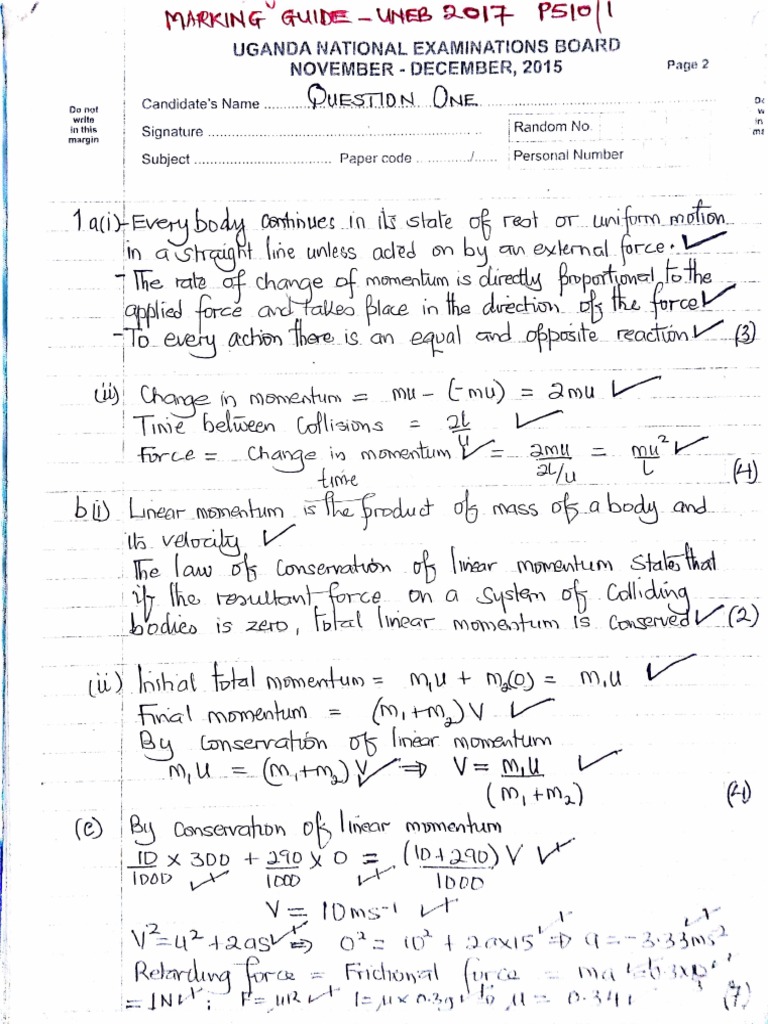 MARKING GUIDE - UNEB 2017 P510/1
UGANDA NATIONAL EXAMINATIONS BOARD
NOVEMBER - DECEMBER, 2015
Page 2
Do not
write
in this
margin
Candidate's Name ........ QUESTION ONE
Signature
Random No.
Subject ........ Paper code ......../......
Personal Number
1 a(i) - Every body continues in its state of rest or uniform motion
in a straight line unless acted on by an external force. ✓
- The rate of change of momentum is directly proportional to the
applied force and takes place in the direction of the force ✓
- To every action there is an equal and opposite reaction ✓ (3)
(ii) Change in momentum = mu - (-mu) = 2mu ✓
Time between Collisions = 2l/u ✓
Force = Change in momentum / time ✓ = 2mu / 2l/u = mu²/l ✓ (4)
b(i) Linear momentum is the product of mass of a body and
its velocity ✓
The law of Conservation of linear momentum states that
if the resultant force on a system of Colliding
bodies is zero, total linear momentum is conserved ✓ (2)
(ii) Initial total momentum = m₁u + m₂(0) = m₁u ✓
Final momentum = (m₁+m₂)V ✓
By Conservation of linear momentum
m₁u = (m₁+m₂)V ✓ ⇒ V = m₁u / (m₁+m₂) ✓ (4)
(c) By Conservation of linear momentum
10/1000 × 300 + 290/1000 × 0 = (10+290)/1000 V ✓
V = 10ms⁻¹ ✓
V² = u² + 2as ✓ ⇒ 0² = 10² + 2ax15 ⇒ a = -3.33ms²
Retarding force = Frictional force = ma
= 1N ✓; F = µR ✓ 1 = µ x 0.3g µ = 0.34 (7)